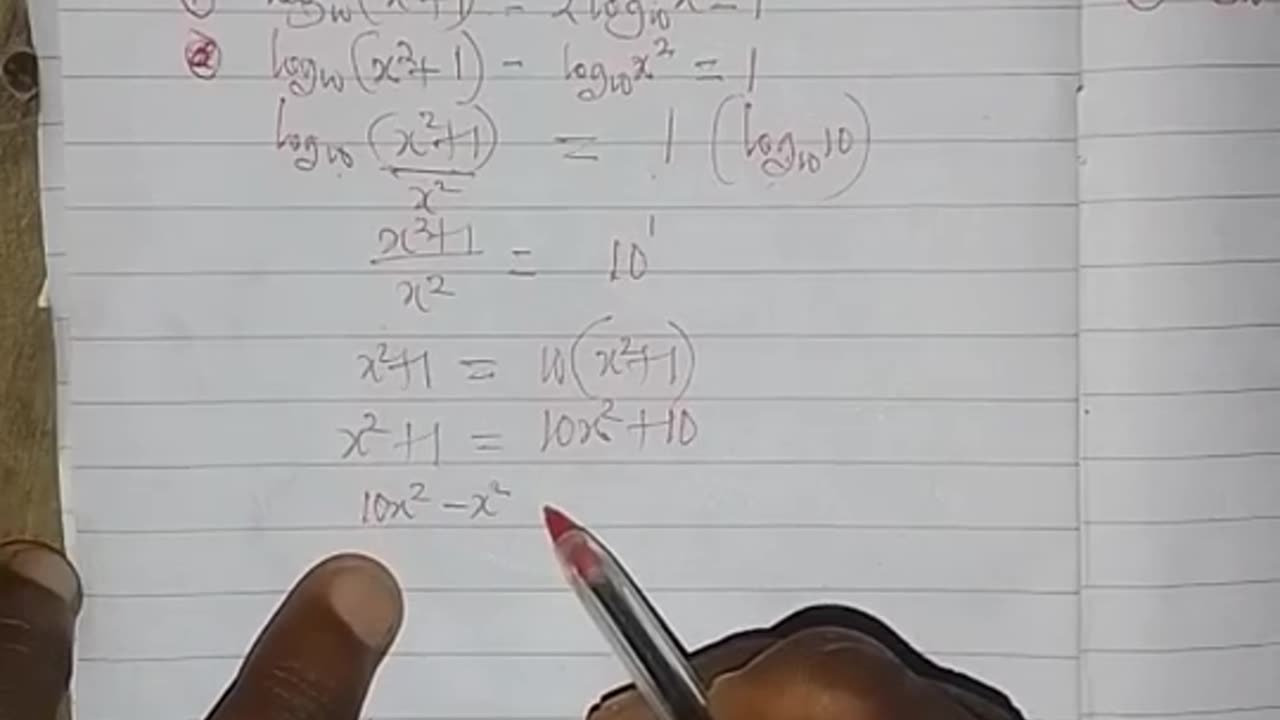 log₁₀(x²+1) - 2log₁₀x = 1
② log₁₀(x²+1) - log₁₀x² = 1
log₁₀ (x²+1)/x² = 1 (log₁₀10)
x²+1/x² = 10¹
x²+1 = 10(x²+1)
x²+1 = 10x²+10
10x² - x²